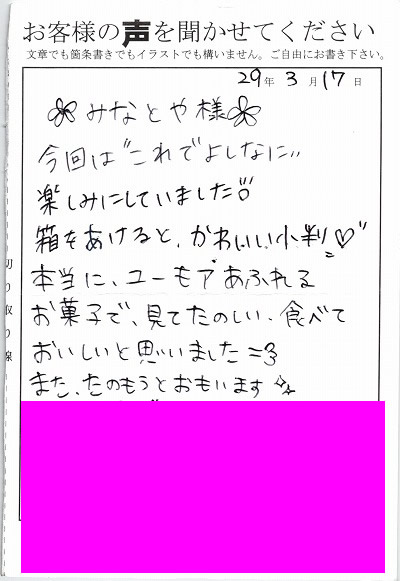 お客様の声を聞かせてください
文章でも箇条書きでもイラストでも構いません。ご自由にお書き下さい。
29年 3月 17日
みなとや様
今回は"これでよしなに"
楽しみにしていました
箱をあけると、かわいい小判♡"
本当に、ユーモアあふれる
お菓子で、見てたのしい、食べて
おいしいと思いました
また、たのもうとおもいます
切り取り線